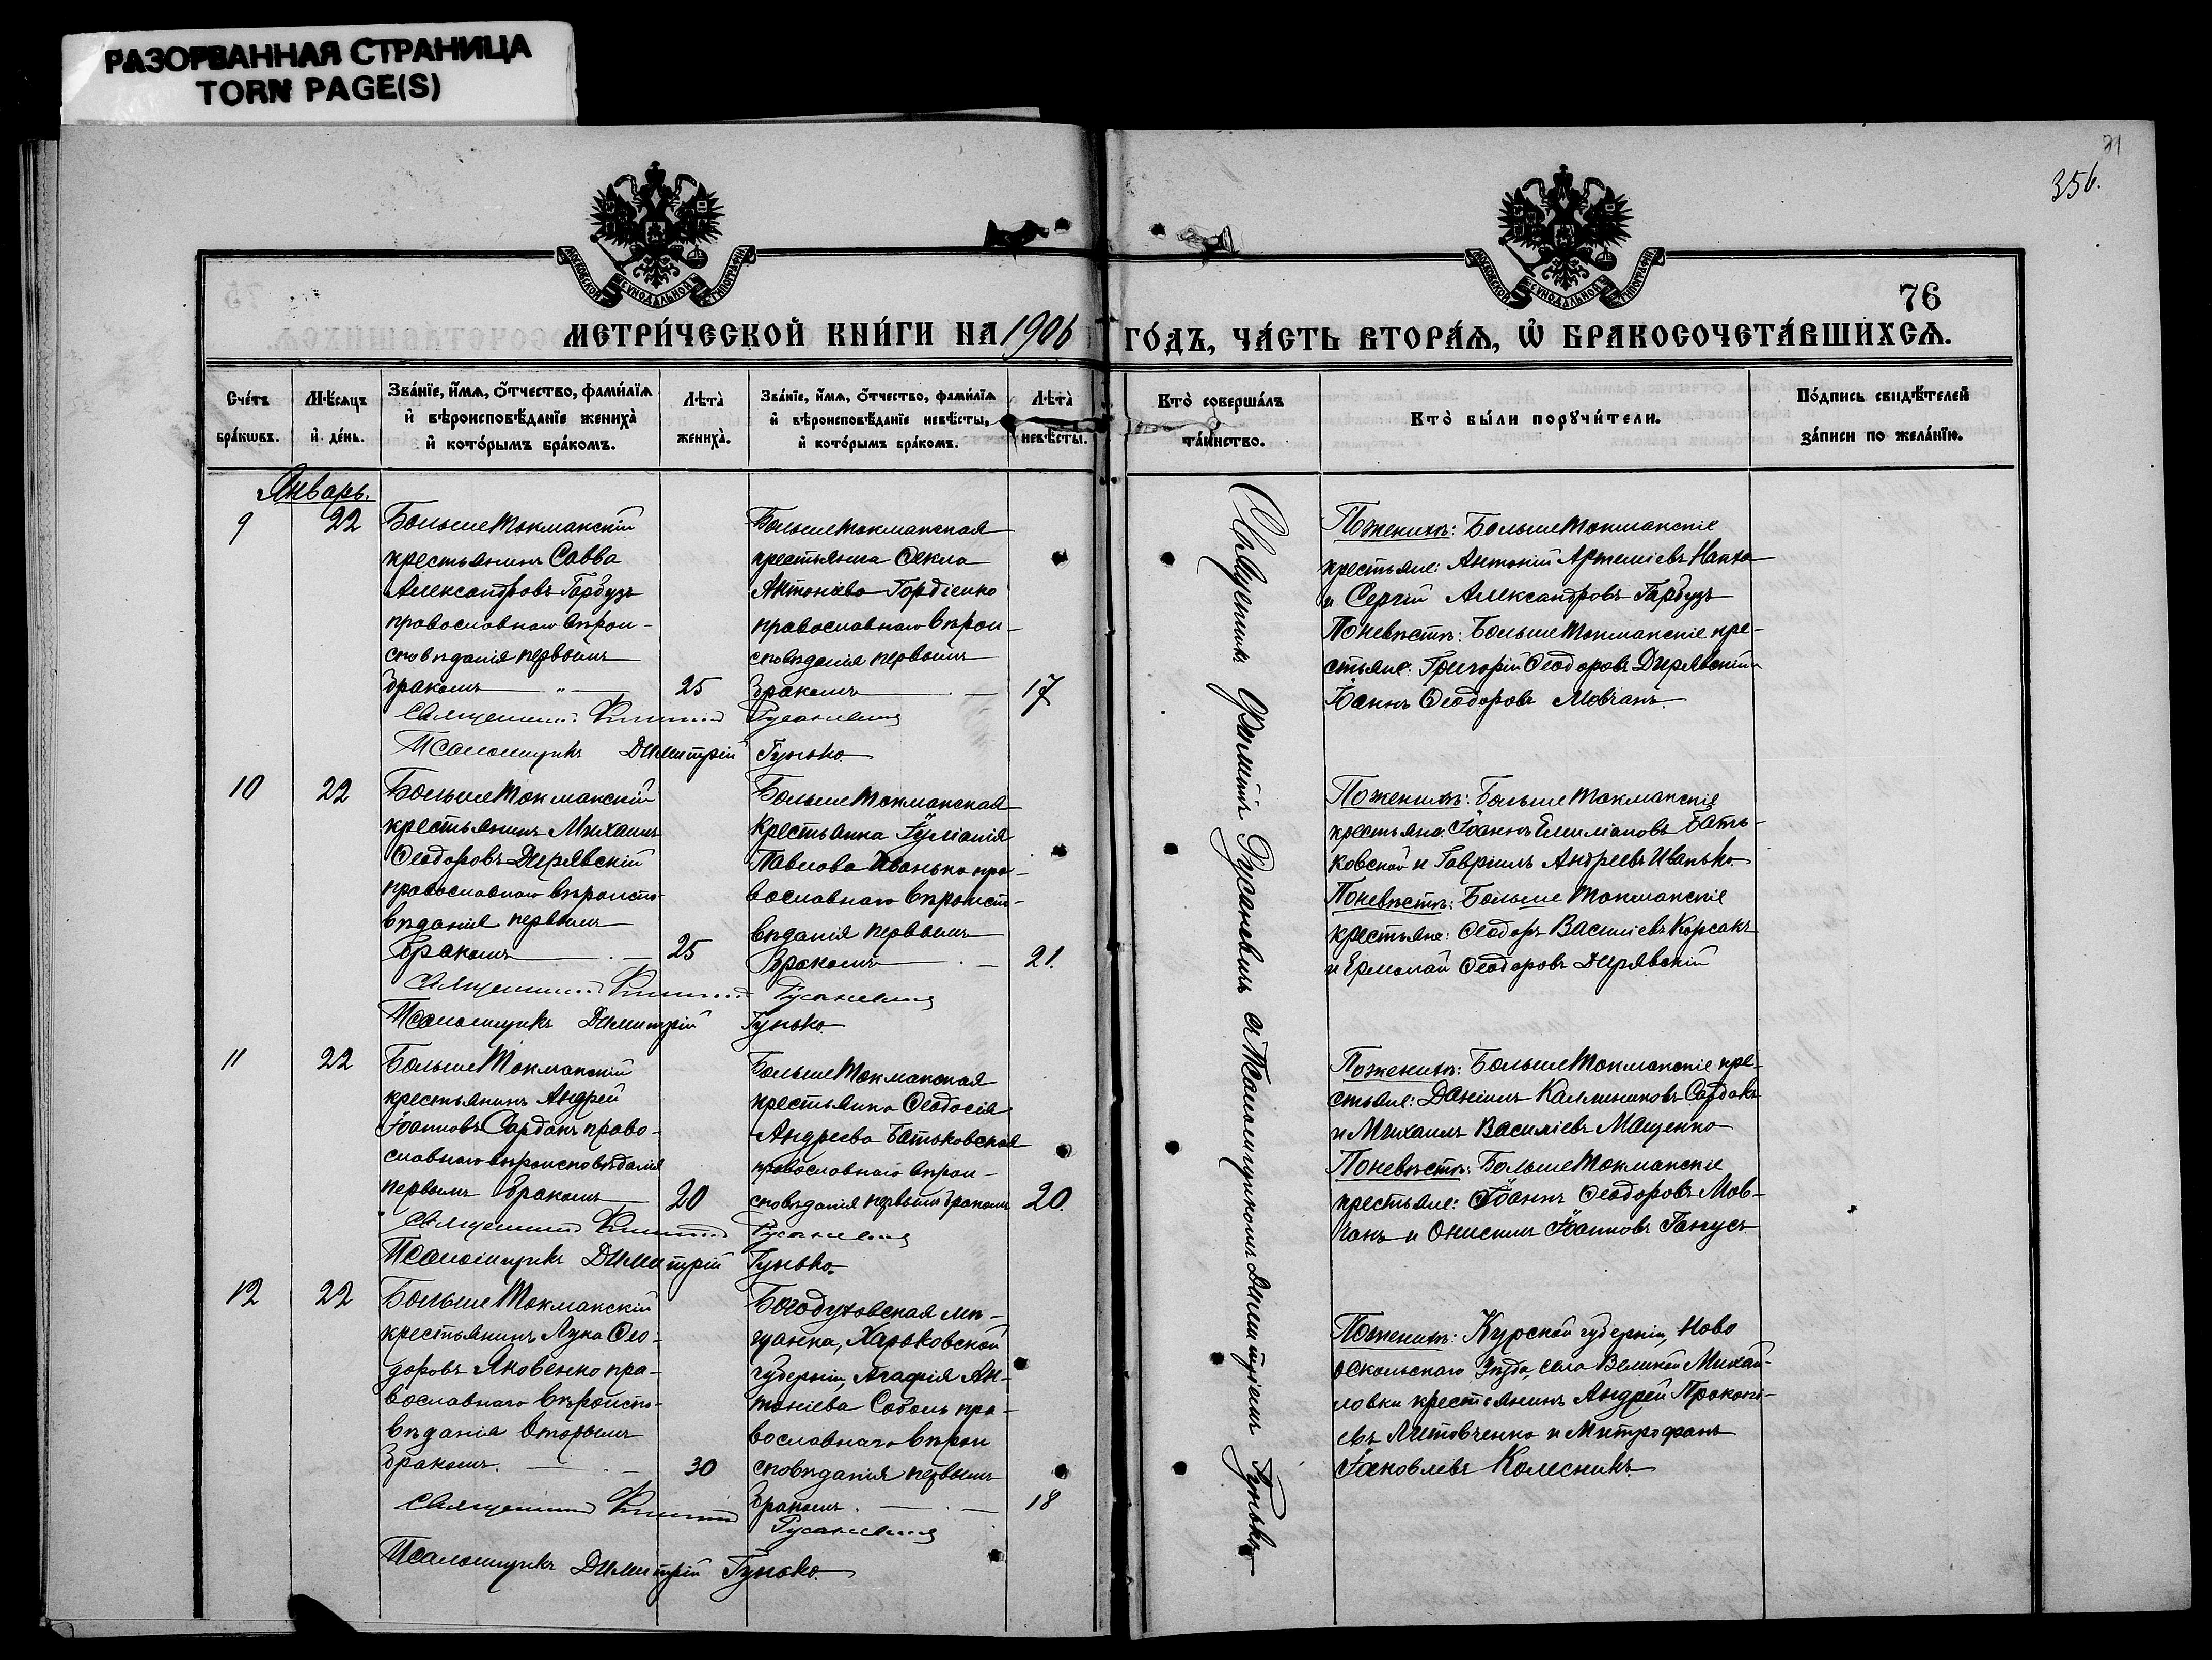 РАЗОРВАННАЯ СТРАНИЦА
TORN PAGE(S)
356.
76
МЕТРИ́ЧЕСКОЙ КНИ́ГИ НА 1906 ГО́ДЪ, ЧА́СТЬ ВТОРА́Ѧ, Ѡ҆ БРАКОСОЧЕТА́ВШИХСѦ.
Сче́тъ
бра́кѡвъ.
Мѣ́сѧцъ
и҆ де́нь.
Зва́нїе, и҆́мѧ, ѻ҆́тчество, фами́лїѧ
и҆ вѣроисповѣ́данїе жениха̀
и҆ кото́рымъ бра́комъ.
Лѣта̀
жениха̀.
Зва́нїе, и҆́мѧ, ѻ҆́тчество, фами́лїѧ
и҆ вѣроисповѣ́данїе невѣ́сты,
и҆ кото́рымъ бра́комъ.
Лѣта̀
невѣ́сты.
Кто̀ соверша́лъ
та́инство.
Кто̀ бы́ли порꙋчи́тели.
По́дпись свидѣ́телей
за́писи по жела́нїю.
Январь.
9
22
БольшеТокмакскій
крестьянинъ Савва
Александровъ Гарбузъ
православнаго вѣрои-
сповѣданія первымъ
бракомъ
25
БольшеТокмакская
крестьянка Ѳекла
Антоніева Гордіенко
православнаго вѣрои-
сповѣданія первымъ
бракомъ
17
Священникъ Русаневичъ
Псаломщикъ Димитрій Гунько.
По женихѣ: БольшеТокмакскіе
крестьяне: Антоній Артеміевъ
и Сергій Александровъ Гарбузъ
По невѣстѣ: БольшеТокмакскіе кре-
стьяне: Григорій Ѳеодоровъ Дирявскій и
Іоаннъ Ѳеодоровъ Мовчанъ.
10
22
БольшеТокмакскій
крестьянинъ Михаилъ
Ѳеодоровъ Дирявскій
православнаго вѣроиспо-
вѣданія первымъ
бракомъ
25
БольшеТокмакская
крестьянка Іуліанія
Павлова Иванько пра-
вославнаго вѣроиспо-
вѣданія первымъ
бракомъ
21.
Священникъ Русаневичъ
Псаломщикъ Димитрій Гунько.
По женихѣ: БольшеТокмакскіе
крестьяне: Іоаннъ Емиліановъ Бать-
ковской и Гавріилъ Андреевъ Иванько.
По невѣстѣ: БольшеТокмакскіе
крестьяне: Ѳеодоръ Василіевъ Корсакъ
и Ермолай Ѳеодоровъ Дирявскій
11
22
БольшеТокмакскій
крестьянинъ Андрей
Іоанновъ Сардакъ право-
славнаго вѣроисповѣданія
первымъ бракомъ
20
БольшеТокмакская
крестьянка Ѳеодосія
Андреева Батьковская
православнаго вѣрои-
сповѣданія первымъ бракомъ
20.
Священникъ Русаневичъ
Псаломщикъ Димитрій Гунько.
По женихѣ: БольшеТокмакскіе кре-
стьяне: Даніилъ Каллиниковъ Сардакъ
и Михаилъ Василіевъ Мащенко
По невѣстѣ: БольшеТокмакскіе
крестьяне: Іоаннъ Ѳеодоровъ Мов-
чанъ и Онисимъ Іоанновъ Ганусъ.
12
22
БольшеТокмакскій
крестьянинъ Лука Ѳео-
доровъ Яковенко пра-
вославнаго вѣроиспо-
вѣданія вторымъ
бракомъ.
30
Богодуховская мѣ-
щанка, Харьковской
губерніи, Агафія Ан-
тоніева Соболь пра-
вославнаго вѣрои
сповѣданія первымъ
бракомъ.
18
Священникъ Русаневичъ
Псаломщикъ Димитрій Гунько.
По женихѣ: Курской губерніи, Ново
оскольскаго уѣзда, села Великой Михай-
ловки крестьянинъ Андрей Прокопі-
евъ Литовченко и Митрофанъ
Іаковлевъ Колесникъ.
Священникъ Русаневичъ съ Псаломщикомъ Димитріемъ Гунько